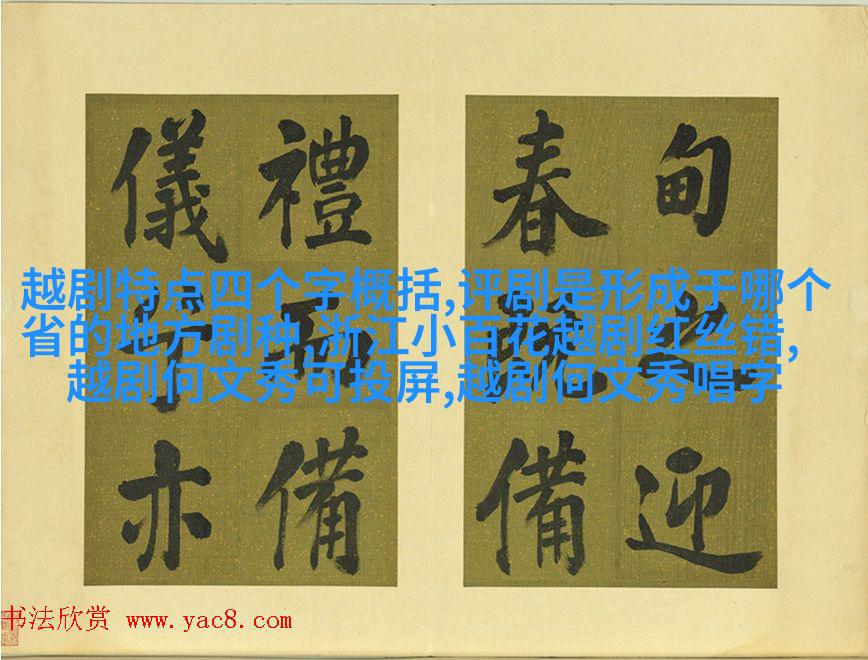 越剧特点四个字概括,评剧是形成于哪个
省的地方剧种,浙江小百花越剧红丝错,
越剧何文秀可投屏,越剧何文秀唱字
甸之迎
春備
禮備
儀亦
书法欣赏 www.yac8.com